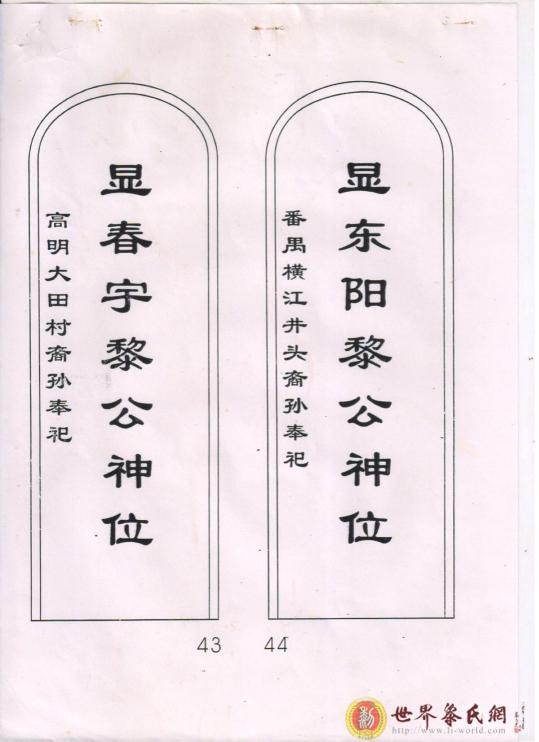 显春宇黎公神位
高明大田村裔孙奉祀
43
显东阳黎公神位
番禺横江井头裔孙奉祀
44
世界黎氏網
http://www.li-world.com